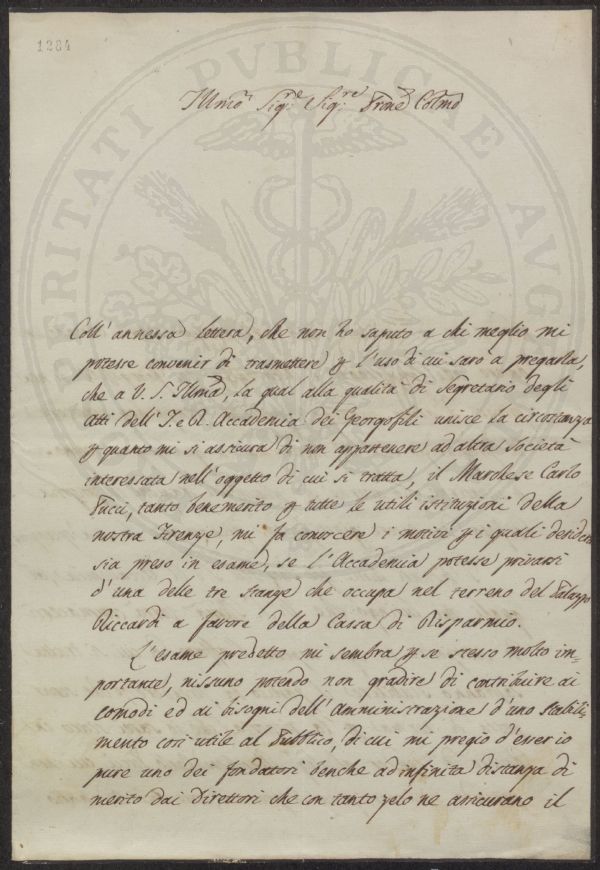 1284
PROSPERITATI PUBLICAE AUG
Illmo Sigre Sigre Prone Colmo
Coll' annessa lettera, che non ho saputo a chi meglio mi
potesse convenir di trasmettere p l'uso di cui sarò a pregarla,
che a V. S. Illma, la qual alla qualità di Segretario degli
Atti dell' I. e R. Accademia dei Georgofili unisce la circostanza
p quanto mi si assicura di non appartenere ad altra Società
interessata nell' oggetto di cui si tratta, il Marchese Carlo
Pucci, tanto benemerito p tutte le utili istituzioni della
nostra Firenze, mi fa conoscere i motivi p i quali desidera
sia preso in esame, se l'Accademia potesse privarsi
d'una delle tre stanze che occupa nel terreno del Palazzo
Riccardi a favore della Cassa di Risparmio.
L'esame predetto mi sembra p se stesso molto im-
portante, nissuno potendo non gradire di contribuire ai
comodi ed ai bisogni dell' amministrazione d'uno stabili-
mento così utile al Pubblico, di cui mi pregio d'esser io
pure uno dei fondatori benche ad infinita distanza di
merito dai Direttori che con tanto zelo ne assicurano il